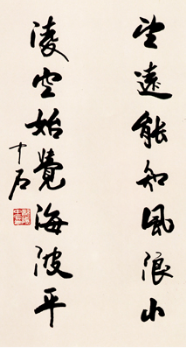 望遠能知風浪小
淩空始覺海波平
中石